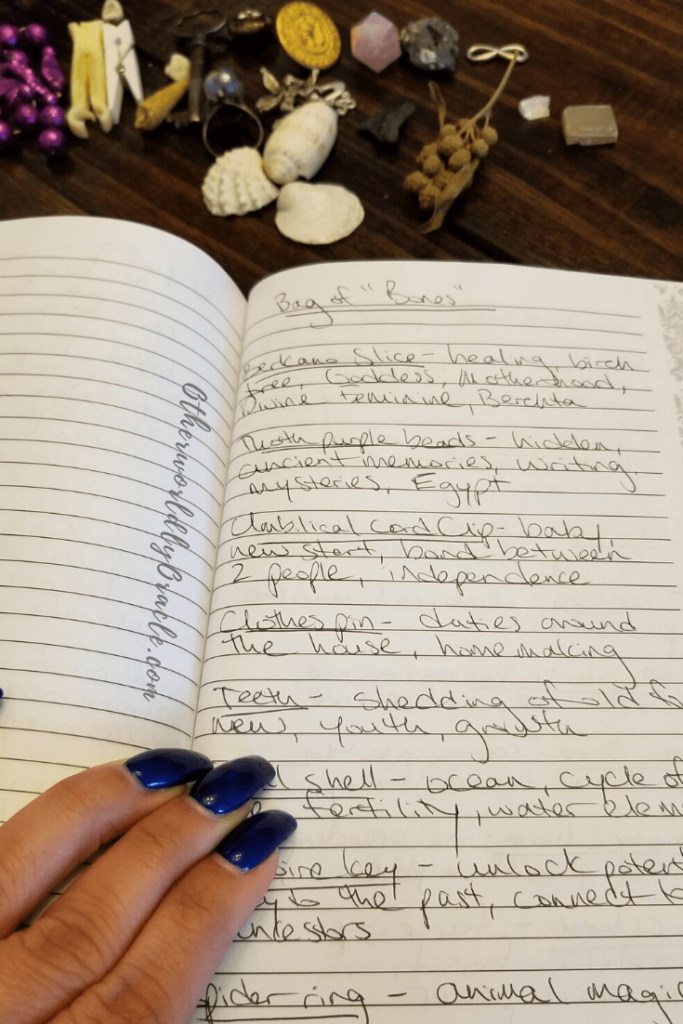 Bag of "Bones"
Berkano Slice - healing, birch
tree, Goddess, Motherhood,
Divine Feminine, Berchta
Thoth purple beads - hidden,
ancient memories, writing,
mysteries, Egypt
Umbilical Cord Clip - baby,
new start, bond between
2 people, independence
Clothes pin - duties around
the house, homemaking
Teeth - shedding of old
new, youth, growth
shell - ocean, cycle of
fertility, water
key - unlock
to the past, connect to
ancestors
ring - animal
OtherworldlyOracle.com